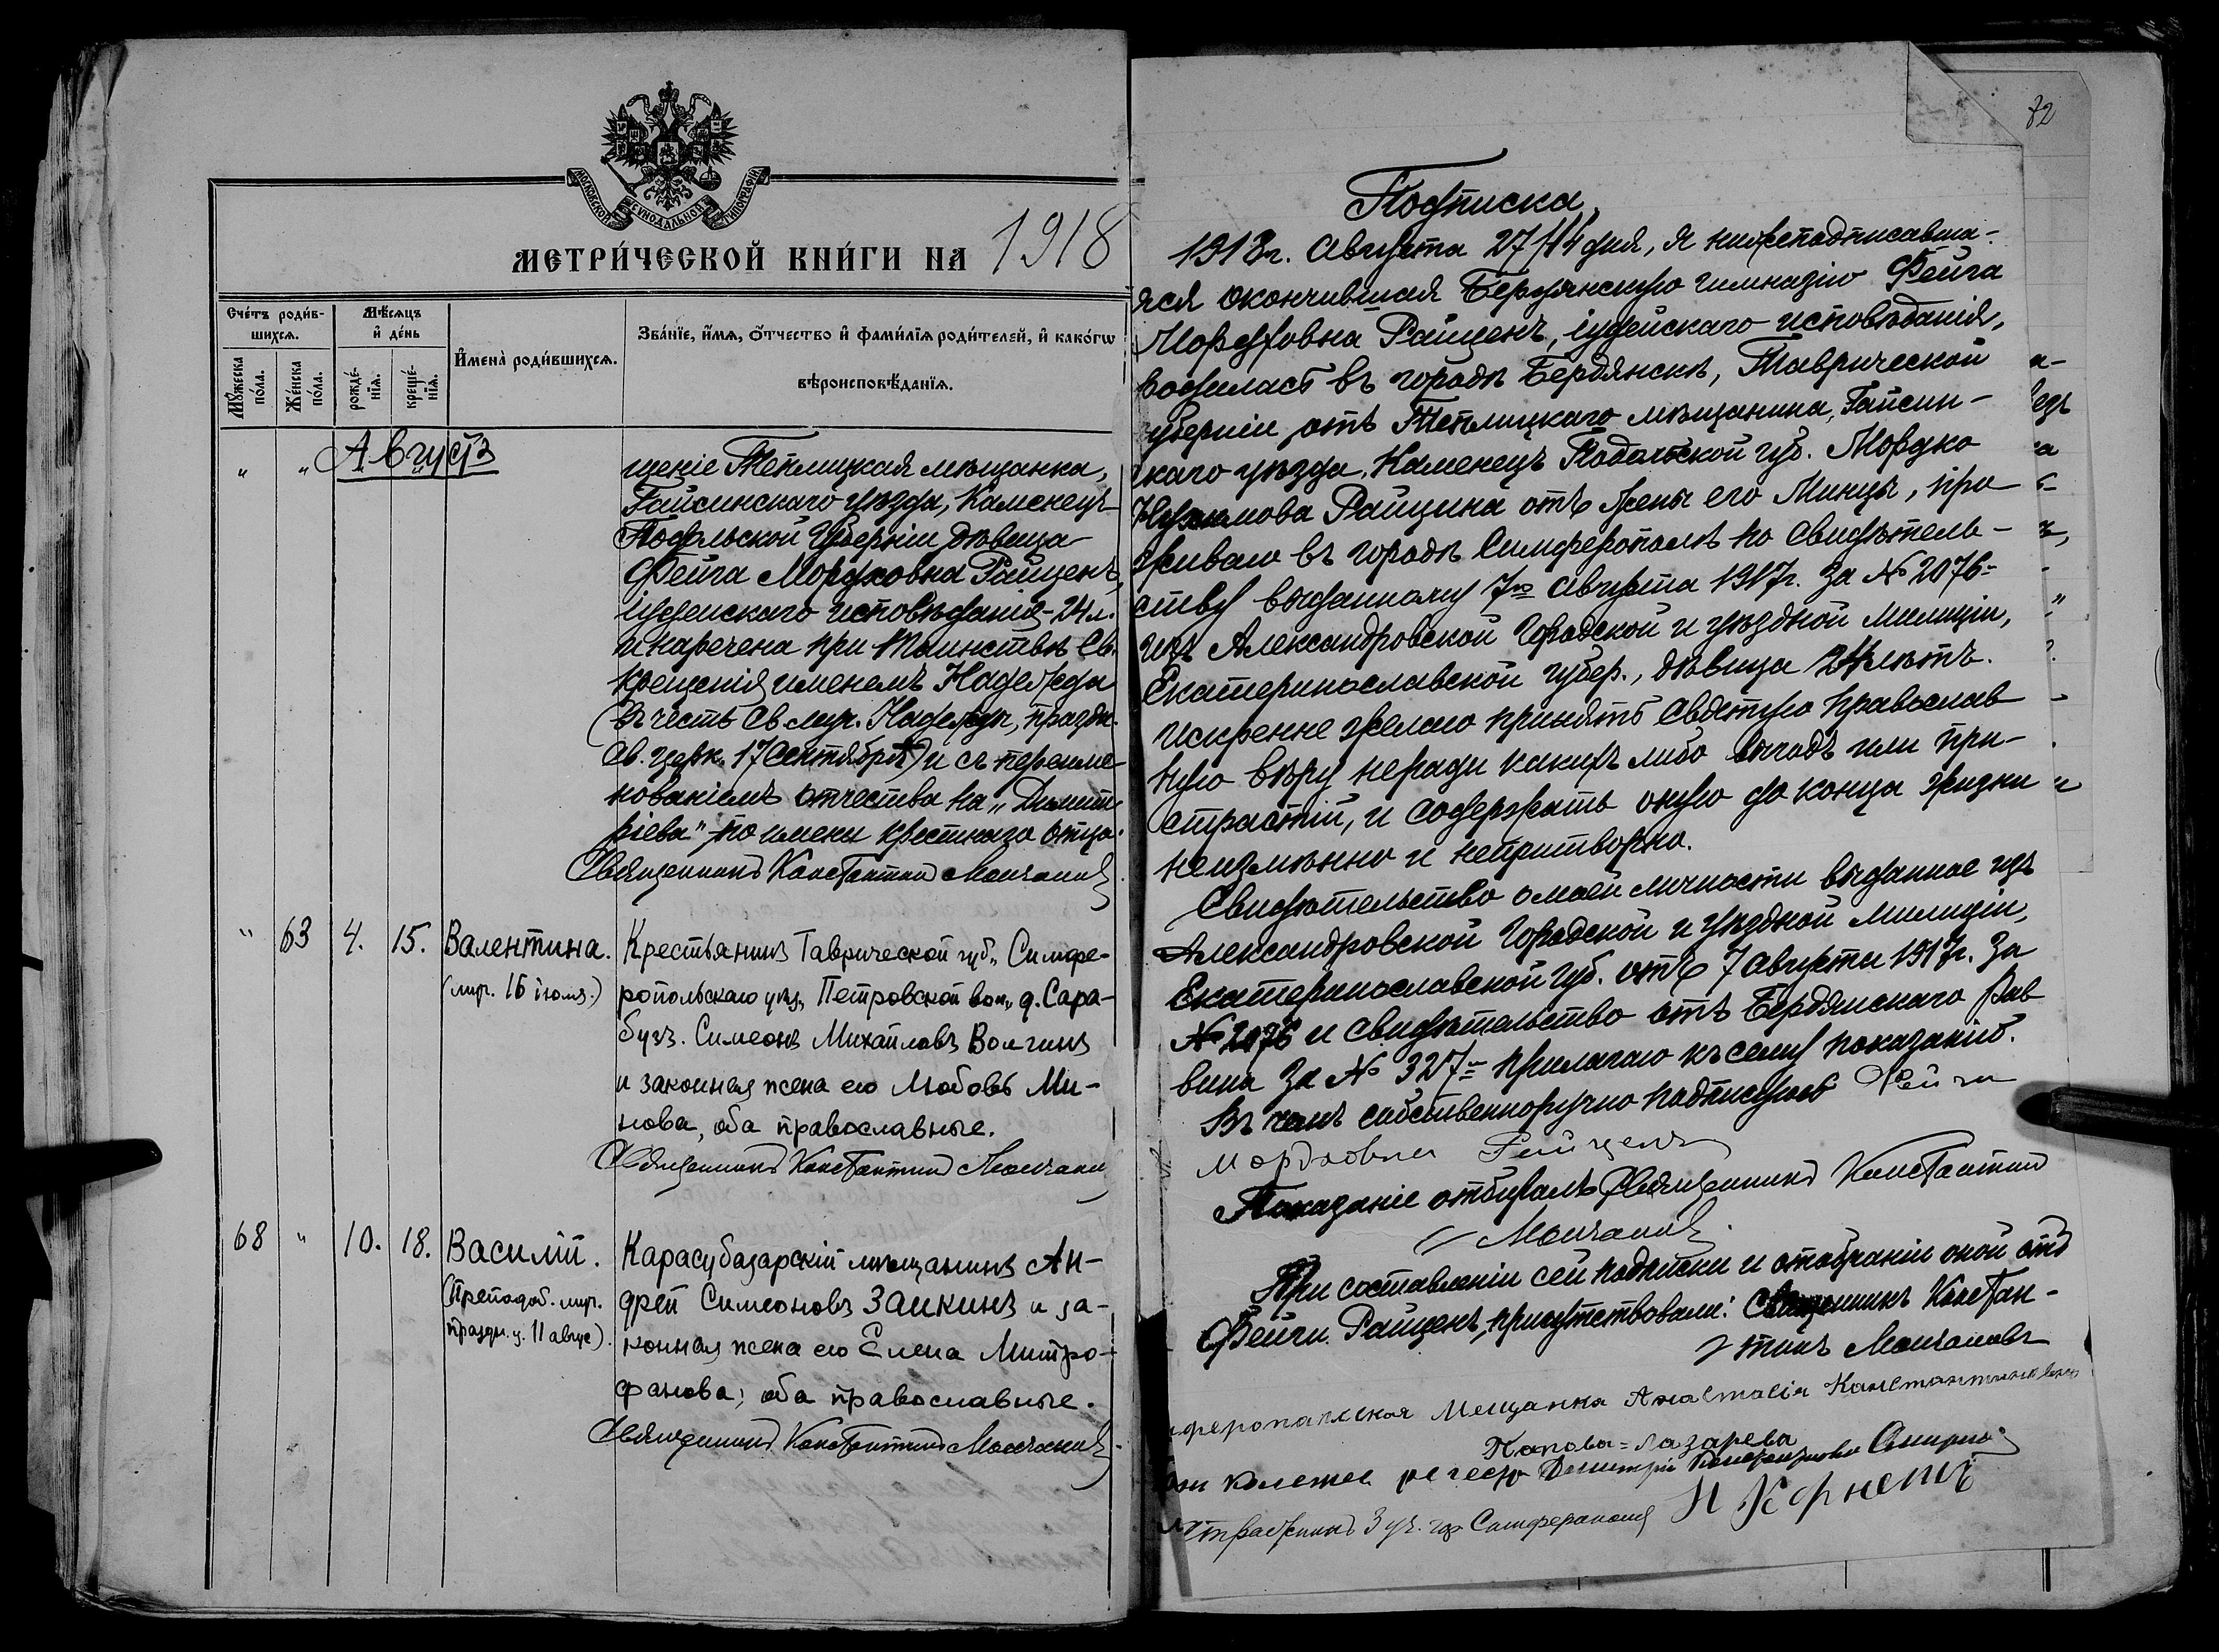 МОСКОВСКОЙ СѴНОДАЛЬНОЙ ТИПОГРАФІИ
МЕТРИ́ЧЕСКОЙ КНИ́ГИ НА 1918
Сче́тъ роди́в-
шихсѧ.
Мѣ́сѧцъ
и҆ де́нь
Мꙋ́жеска
по́ла.
Же́нска
по́ла.
рожде́-
нїѧ.
креще́-
нїѧ.
И҆мена̀ роди́вшихсѧ.
Зва́нїе, и҆́мѧ, ѻ҆́тчество и҆ фами́лїѧ роди́телей, и҆ како́гѡ
вѣроисповѣ́данїѧ.
" " Августъ
щеніе Тѣплицкая мѣщанка,
Гайсинскаго уѣзда, Каменецъ-
Подольской Губерніи дѣвица
Фейга Мордховна Райценъ,
іудейскаго исповѣданія - 24 л.
и наречена при Таинствѣ Св.
Крещенія именемъ Надежда
(въ честь св. муч. Надежды, праздн.
св. церк. 17 Сентября) и съ переиме-
нованіемъ отчества на "Димит-
ріева" - по имени крестнаго отца.
Священникъ Константинъ Молчановъ
" 63 4. 15. Валентина.
(муч. 16 іюля.)
Крестьянинъ Таврической губ., Симфе-
ропольскаго уѣз., Петровской вол., д. Сара-
бузъ. Симеонъ Михайловъ Волгинъ
и законная жена его Любовь Ми-
нова, оба православные.
Священникъ Константинъ Молчановъ
68 " 10. 18. Василій.
(Преподоб. муч.
праздн. ц. 11 авгус).
Карасубазарскій мѣщанинъ Ан-
дрей Симеоновъ Заикинъ и за-
конная жена его Елена Митро-
фанова; оба православные.
Священникъ Константинъ Молчановъ
82
Подписка,
1918 г. Августа 27/14 дня, я нижеподписавша-
яся окончившая Бердянскую гимназію Фейга
Мордховна Райценъ, іудейскаго исповѣданія,
родилась въ городѣ Бердянскѣ, Таврической
губерніи, отъ Тѣплицкаго мѣщанина, Гайсин-
скаго уѣзда, Каменецъ Подольской губ. Мордко
Нухимова Райцина отъ жены его Минцы, про-
живаю въ городѣ Симферополѣ по Свидѣтель-
ству выданному 7го Августа 1917 г. за № 2076-
изъ Александровской Городской и уѣздной Милиціи,
Екатеринославской губер., дѣвица 24 лѣтъ.
Искренне желаю принять святую православ
ную вѣру не ради какихъ либо выгодъ или при-
страстій, и содержать оную до конца жизни
неизмѣнно и непритворно.
Свидѣтельство о моей личности выданное изъ
Александровской Городской и уѣздной Милиціи,
Екатеринославской губ. отъ 7 Августа 1917 г. за
№ 2076 и свидѣтельство отъ Бердянскаго Рав
вина за № 327- прилагаю къ сему показанію.
Въ чемъ собственноручно подписуюсь Фейга
Мордховна Райценъ
Показаніе отбиралъ Священникъ Константинъ
Молчановъ.
При составленіи сей подписки и отобраніи оной отъ
Фейги Райценъ, присутствовали: Священникъ Констан-
тинъ Молчановъ
Мещанка Анастасія
Попова-Лазарева
Димитрій
Стражникъ 3 уч. гор Симферополя Н Корнетъ